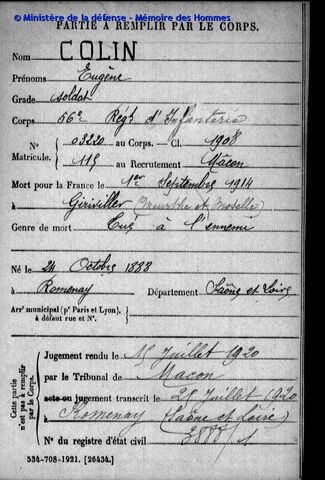 © Ministère de la défense - Mémoire des Hommes
PARTIE À REMPLIR PAR LE CORPS.
Nom COLIN
Prénoms Eugène
Grade soldat
Corps 56e Régt d'Infanterie
N° 03220 au Corps. — Cl. 1908
Matricule. 115 au Recrutement Mâcon
Mort pour la France le 1er Septembre 1914
à Giriviller (Meurthe et Moselle)
Genre de mort Tué à l'ennemi
Né le 24 Octobre 1888
à Romenay Département Saône et Loire
Arrt municipal (pr Paris et Lyon), à défaut rue et N°.
Cette partie n'est pas à remplir par le Corps.
Jugement rendu le 15 Juillet 1920
par le Tribunal de Macon
acte ou jugement transcrit le 25 Juillet 1920
à Romenay (Saône et Loire)
N° du registre d'état civil
534-708-1921. [26434.]